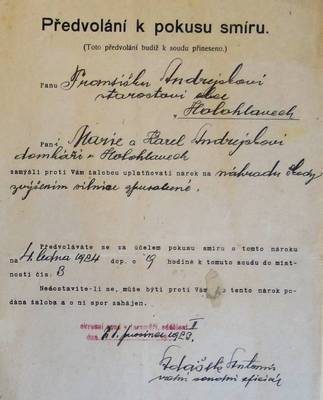 Předvolání k pokusu smíru.
(Toto předvolání budiž k soudu přineseno.)
Panu Františku Andrejskovi
starostovi obce
Holohlavech
Paní Marie a Karel Andrejskovi
domkáři v Holohlavech
zamýšlí proti Vám žalobou uplatňovati nárok na náhradu škody
zvýšením silnice způsobené.
Předvoláváte se za účelem pokusu smíru o tomto nároku
na 4. ledna 1924 dop. o 9 hodině k tomuto soudu do míst-
nosti čís. 3
Nedostavíte-li se, může býti proti Vám o tento nárok po-
dána žaloba a o ní spor zahájen.
okresní soud v oddělení II
dne prosince 1923.
Antonín